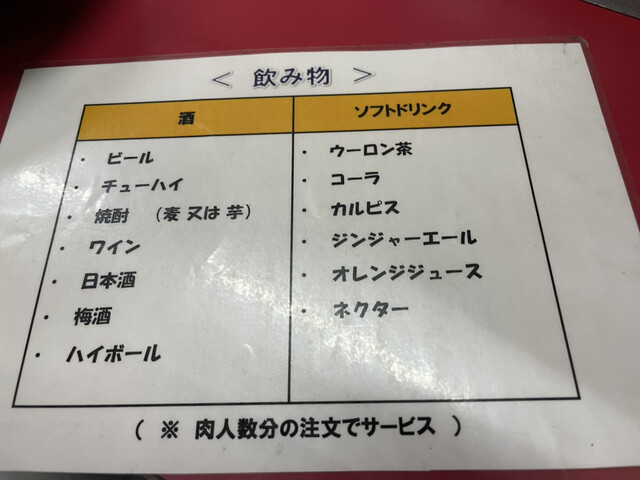 ＜ 飲み物 ＞
酒
・ ビール
・ チューハイ
・ 焼酎 （麦 又は 芋）
・ ワイン
・ 日本酒
・ 梅酒
・ ハイボール
ソフトドリンク
・ ウーロン茶
・ コーラ
・ カルピス
・ ジンジャーエール
・ オレンジジュース
・ ネクター
（ ※ 肉人数分の注文でサービス ）